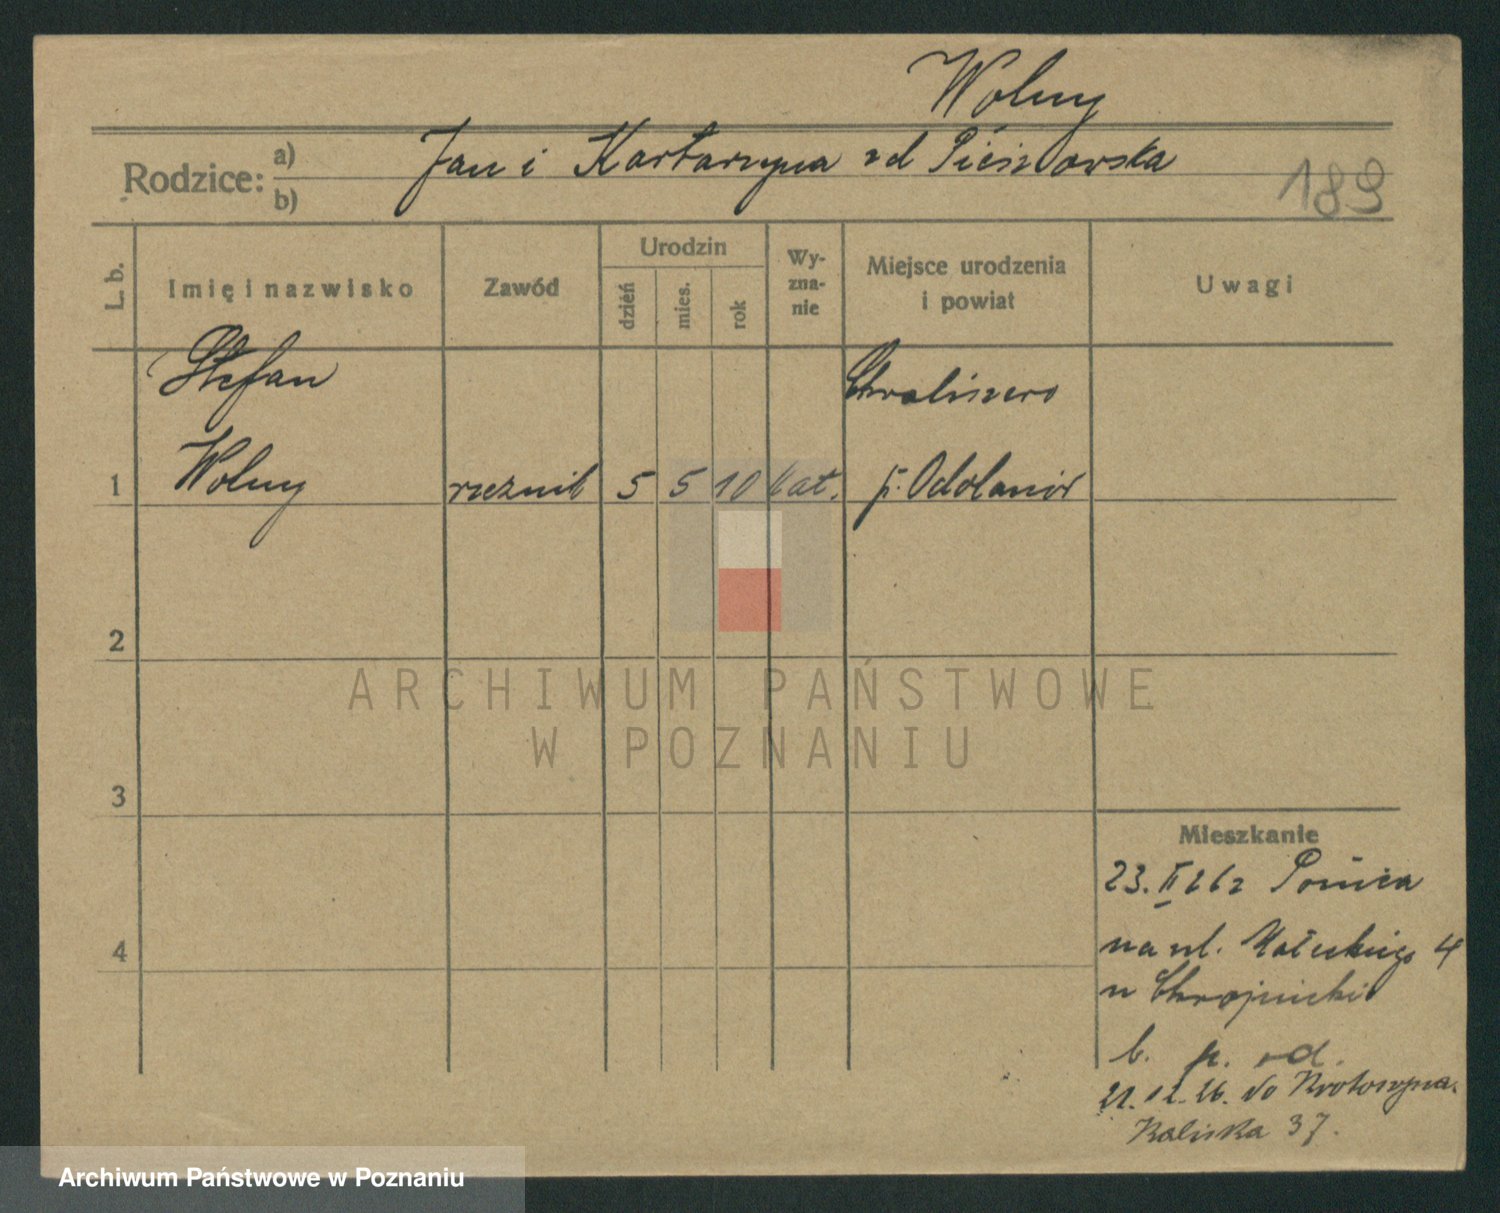 Wolny
Rodzice: a) b)
Jan i Kartarzyna zd
189
L. b.
Imię i nazwisko
Zawód
Urodzin
dzień
mies.
rok
Wy-
zna-
nie
Miejsce urodzenia
i powiat
Uwagi
Stefan
Chwaliszew
1 Wolny rzeźnik 5 5 10 kat. p. Odolanów
2
ARCHIWUM PAŃSTWOWE
W POZNANIU
3
Mieszkanie
23. II 26 z
4
na ul. 4
u Chojnicki
b. p. od.
21.12.26. do Krotoszyna.
Kaliska 37.
Archiwum Państwowe w Poznaniu